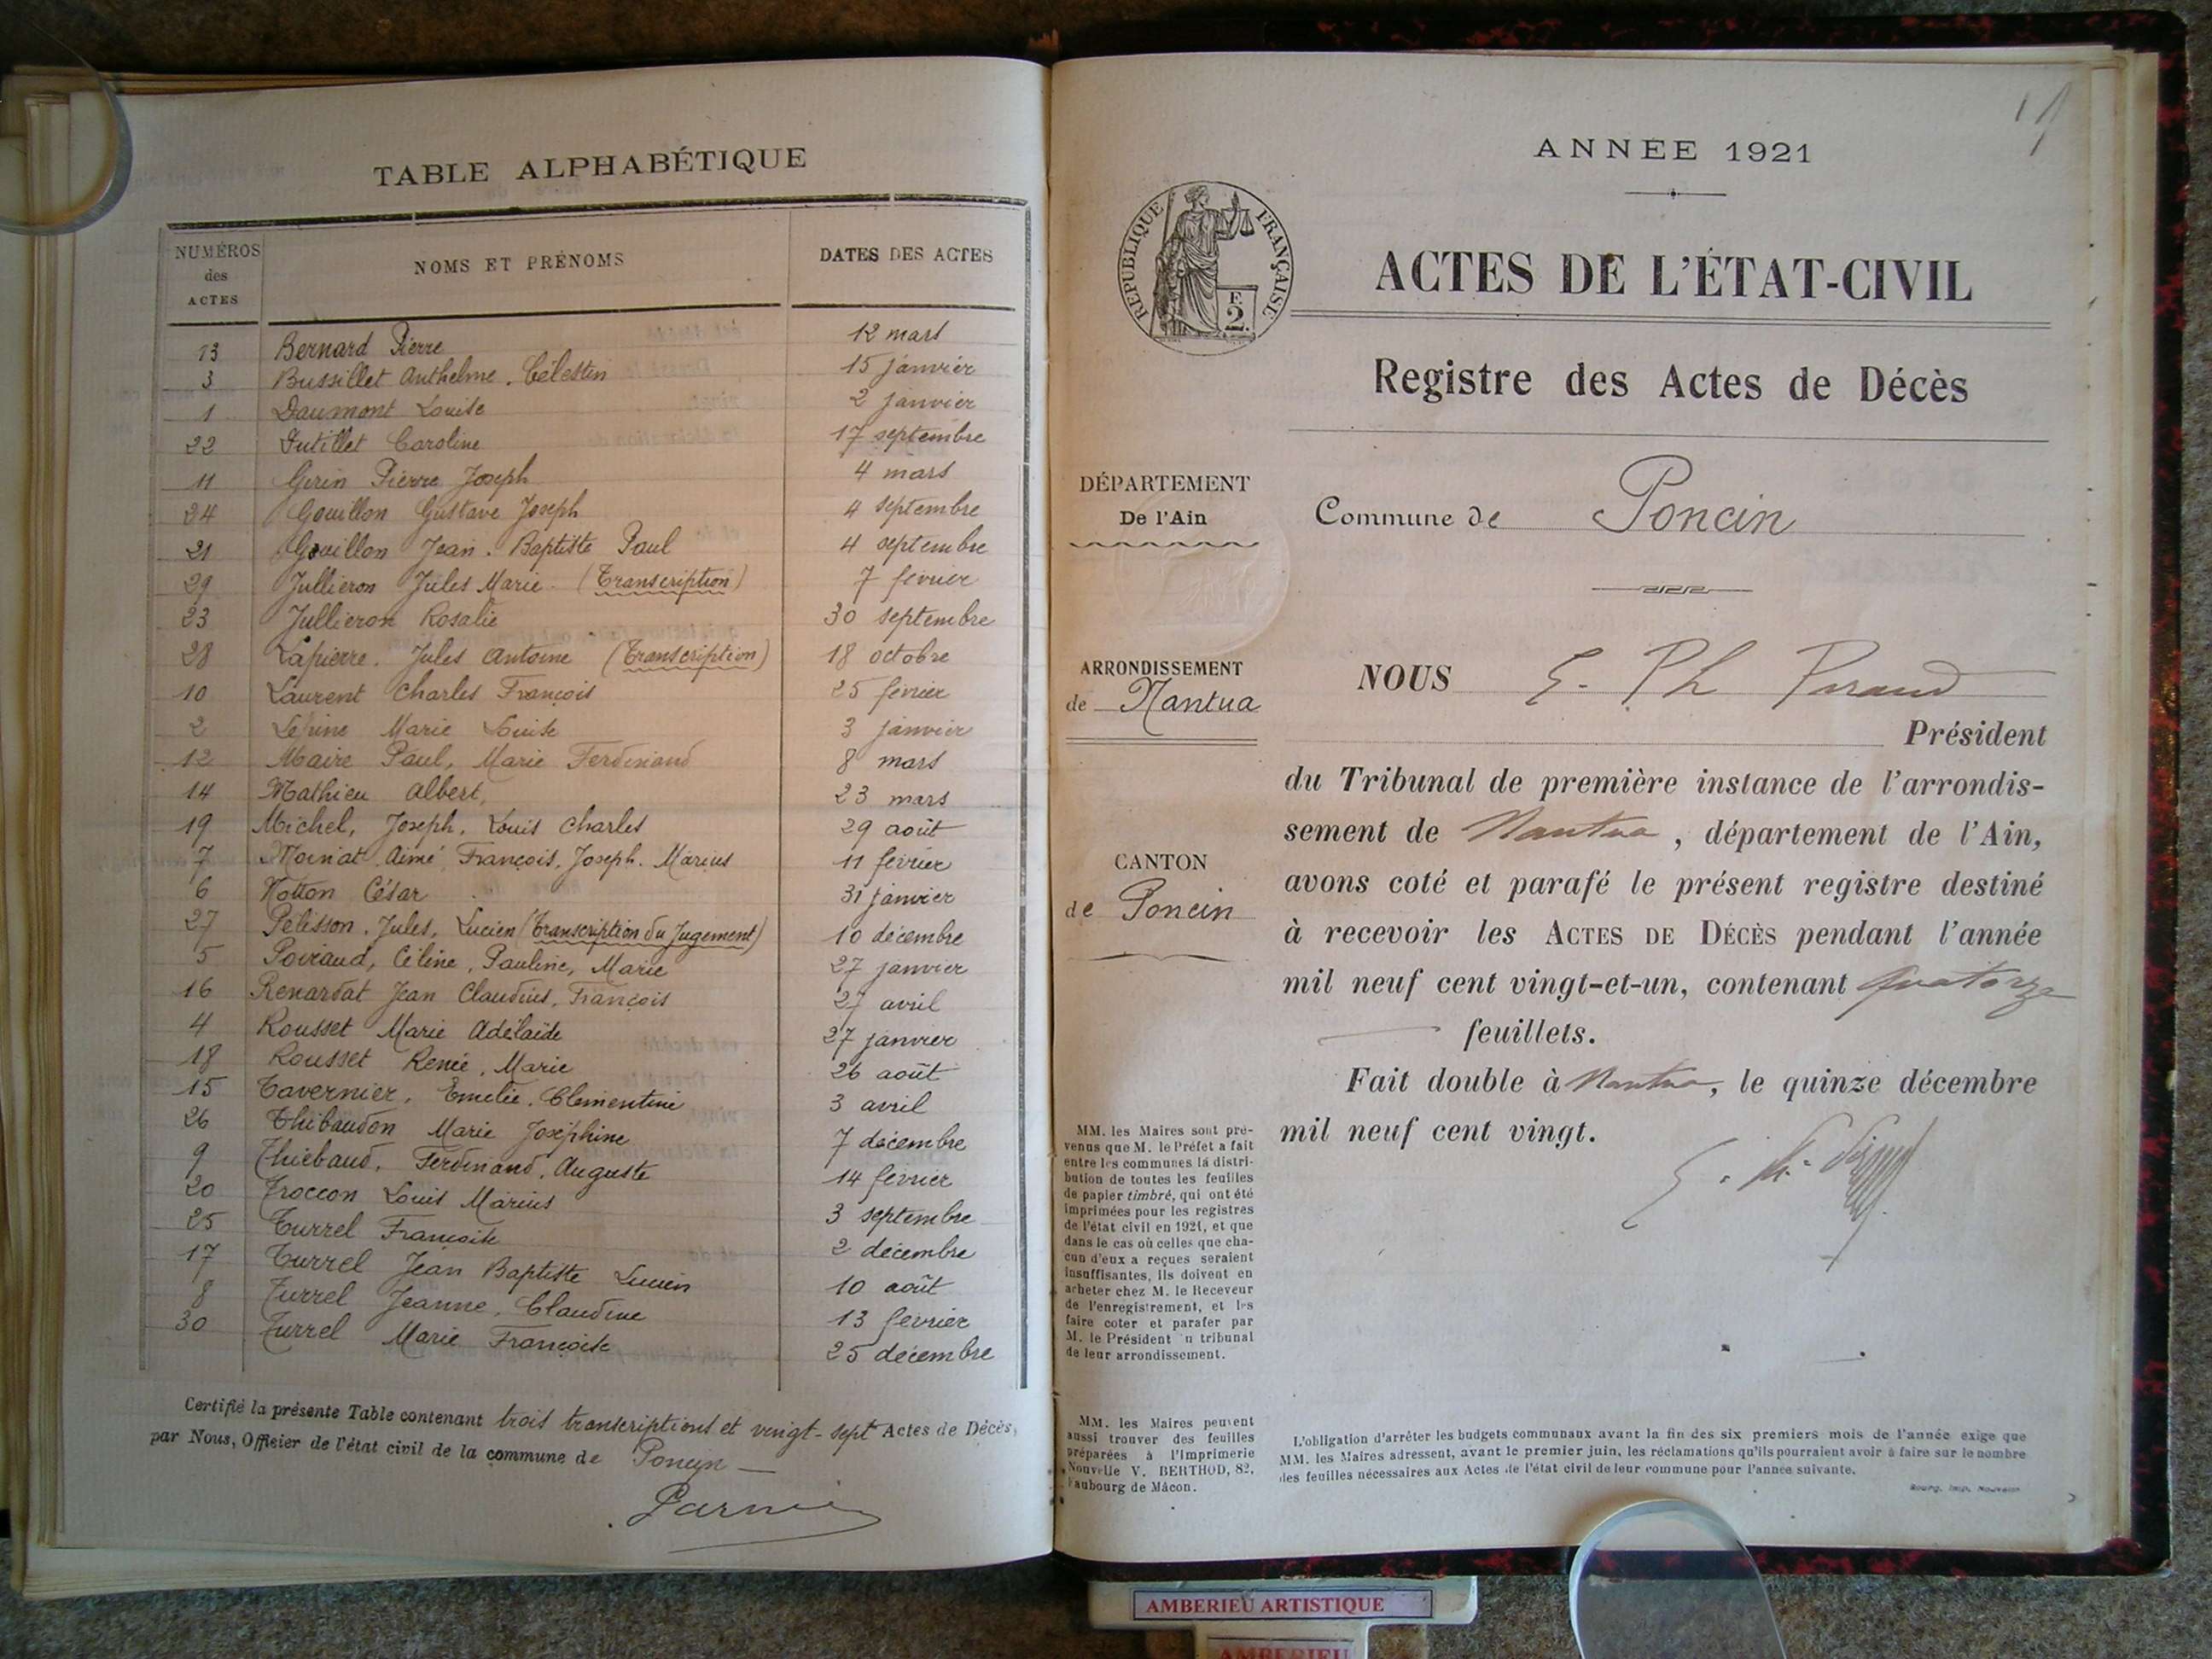 TABLE ALPHABÉTIQUE
NUMÉROS des ACTES NOMS ET PRÉNOMS DATES DES ACTES
13 Bernard Pierre 12 mars
3 Bussillet Anthelme. Célestin 15 janvier
1 Daumont Louise 2 janvier
22 Dutillet Caroline 17 septembre
11 Gerin Pierre Joseph 4 mars
24 Gouillon Gustave Joseph 4 septembre
21 Gouillon Jean. Baptiste Paul 4 septembre
29 Jullieron Jules Marie. (Transcription) 7 février
23 Jullieron Rosalie 30 septembre
28 Lapierre. Jules Antoine (Transcription) 18 octobre
10 Laurent Charles François 25 février
2 Lépine Marie Louise 3 janvier
12 Maire Paul, Marie Ferdinand 8 mars
14 Mathieu Albert, 23 mars
19 Michel, Joseph, Louis Charles 29 août
7 Moinat Aimé François, Joseph. Marius 11 février
6 Notton César 31 janvier
27 Pélisson. Jules, Lucien (Transcription du Jugement) 10 décembre
5 Poiraud, Céline, Pauline, Marie 27 janvier
16 Renardat Jean Claudius, François 27 avril
4 Rousset Marie Adélaïde 27 janvier
18 Rousset Renée, Marie 26 août
15 Tavernier, Emélie. Clémentine 3 avril
26 Thibaudon Marie Joséphine 7 décembre
9 Thiébaud, Ferdinand, Auguste 14 février
20 Troccon Louis Marius 3 septembre
25 Turrel Françoise 2 décembre
17 Turrel Jean Baptiste Lucien 10 août
8 Turrel Jeanne, Claudine 13 février
30 Turrel Marie Françoise 25 décembre
Certifié la présente Table contenant trois transcriptions et vingt-sept Actes de Décès,
par Nous, Officier de l'état civil de la commune de Poncin
ANNÉE 1921
RÉPUBLIQUE FRANÇAISE
F.
2.
ACTES DE L'ÉTAT-CIVIL
Registre des Actes de Décès
DÉPARTEMENT
De l'Ain
Commune de Poncin
ARRONDISSEMENT
de Nantua
CANTON
de Poncin
NOUS E. Ph
Président
du Tribunal de première instance de l'arrondis-
sement de Nantua, département de l'Ain,
avons coté et parafé le présent registre destiné
à recevoir les ACTES DE DÉCÈS pendant l'année
mil neuf cent vingt-et-un, contenant quatorze
feuillets.
Fait double à Nantua, le quinze décembre
mil neuf cent vingt.
MM. les Maires sont pré-
venus que M. le Préfet a fait
entre les communes la distri-
bution de toutes les feuilles
de papier timbré, qui ont été
imprimées pour les registres
de l'état civil en 1921, et que
dans le cas où celles que cha-
cun d'eux a reçues seraient
insuffisantes, ils doivent en
acheter chez M. le Receveur
de l'enregistrement, et les
faire coter et parafer par
M. le Président u tribunal
de leur arrondissement.
MM. les Maires peuvent
aussi trouver des feuilles
préparées à l'Imprimerie
Nouvelle V. BERTHOD, 82,
Faubourg de Mâcon.
L'obligation d'arrêter les budgets communaux avant la fin des six premiers mois de l'année exige que
MM. les Maires adressent, avant le premier juin, les réclamations qu'ils pourraient avoir à faire sur le nombre
des feuilles nécessaires aux Actes de l'état civil de leur commune pour l'année suivante.
Bourg, Imp. Nouvelle
AMBERIEU ARTISTIQUE
AMBERIEU